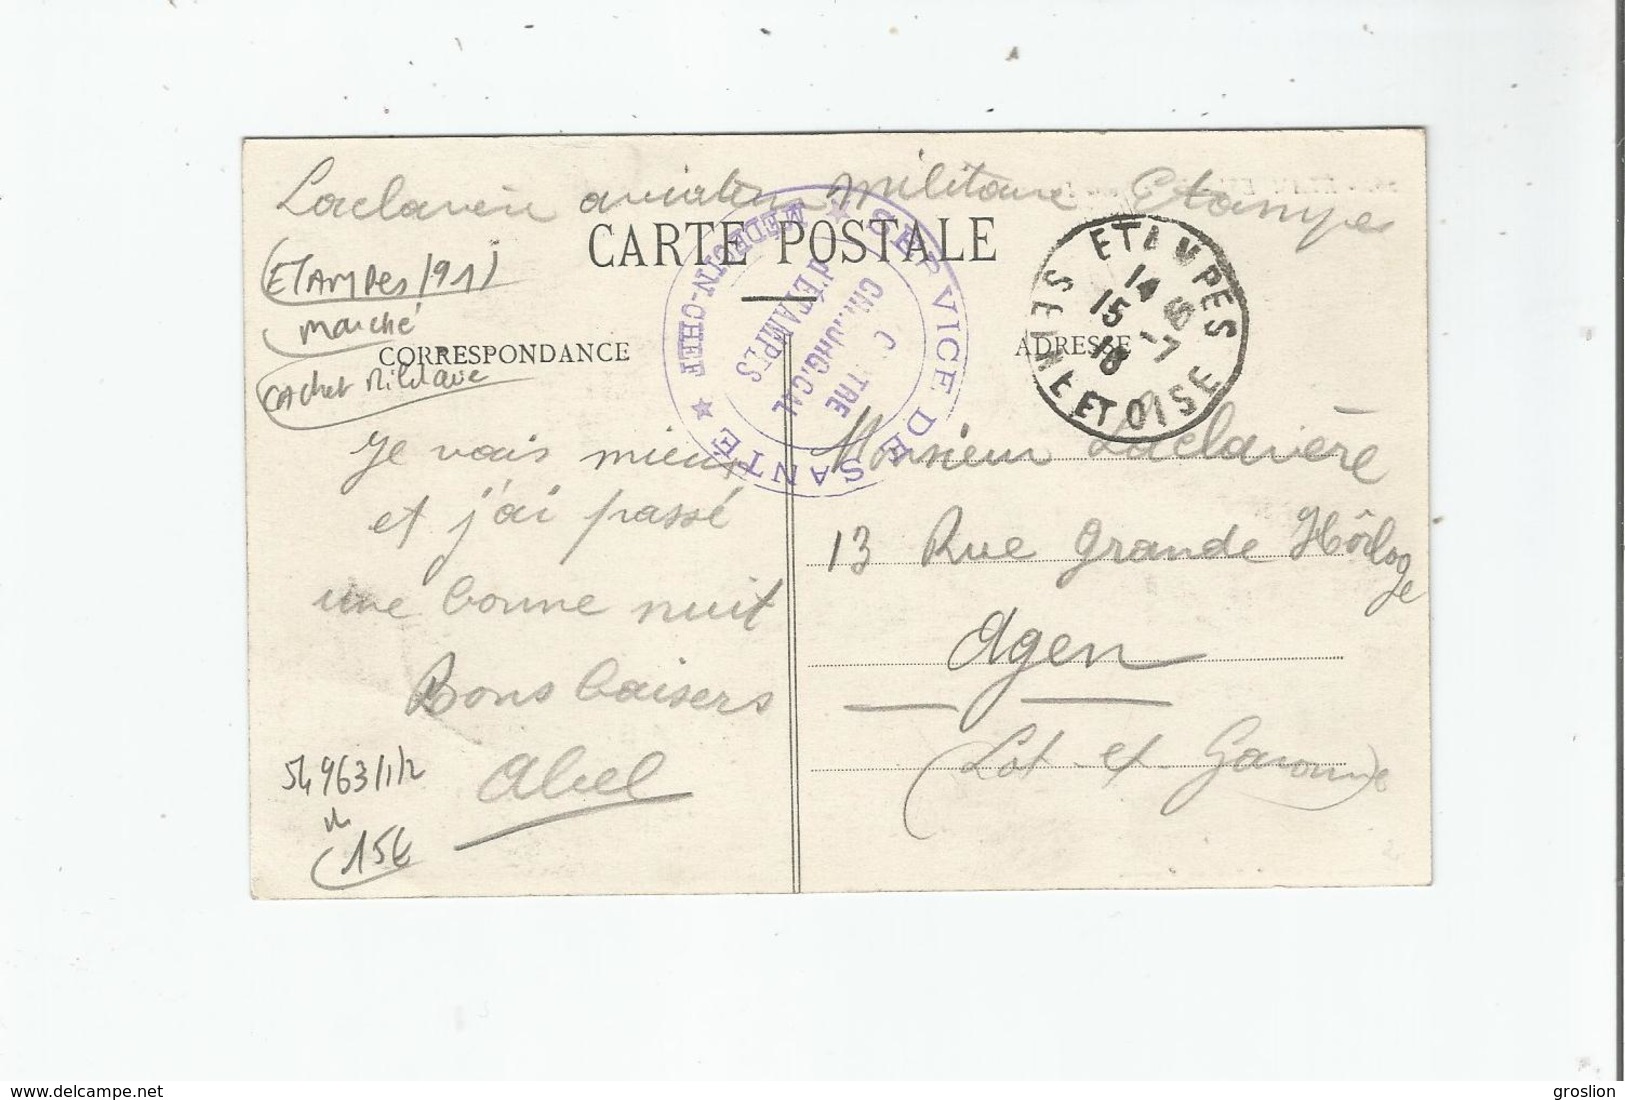 Laclavère aviation militaire Etampes
CARTE POSTALE
ETAMPES (91)
Marché
Cachet Militaire
CORRESPONDANCE
ADRESSE
SERVICE DE SANTÉ ★ MÉDECIN-CHEF ★
CENTRE
CHIRURGICAL
d'ÉTAMPES
ETAMPES
14
15 -7
18
SEINE ET OISE
Je vais mieux
et j'ai passé
une bonne nuit
Bons baisers
Abel
Monsieur Laclavère
13 Rue Grande Hôrloge
Agen
(Lot et Garonne)
54963/1/2
15€
delcampe.net
groslion